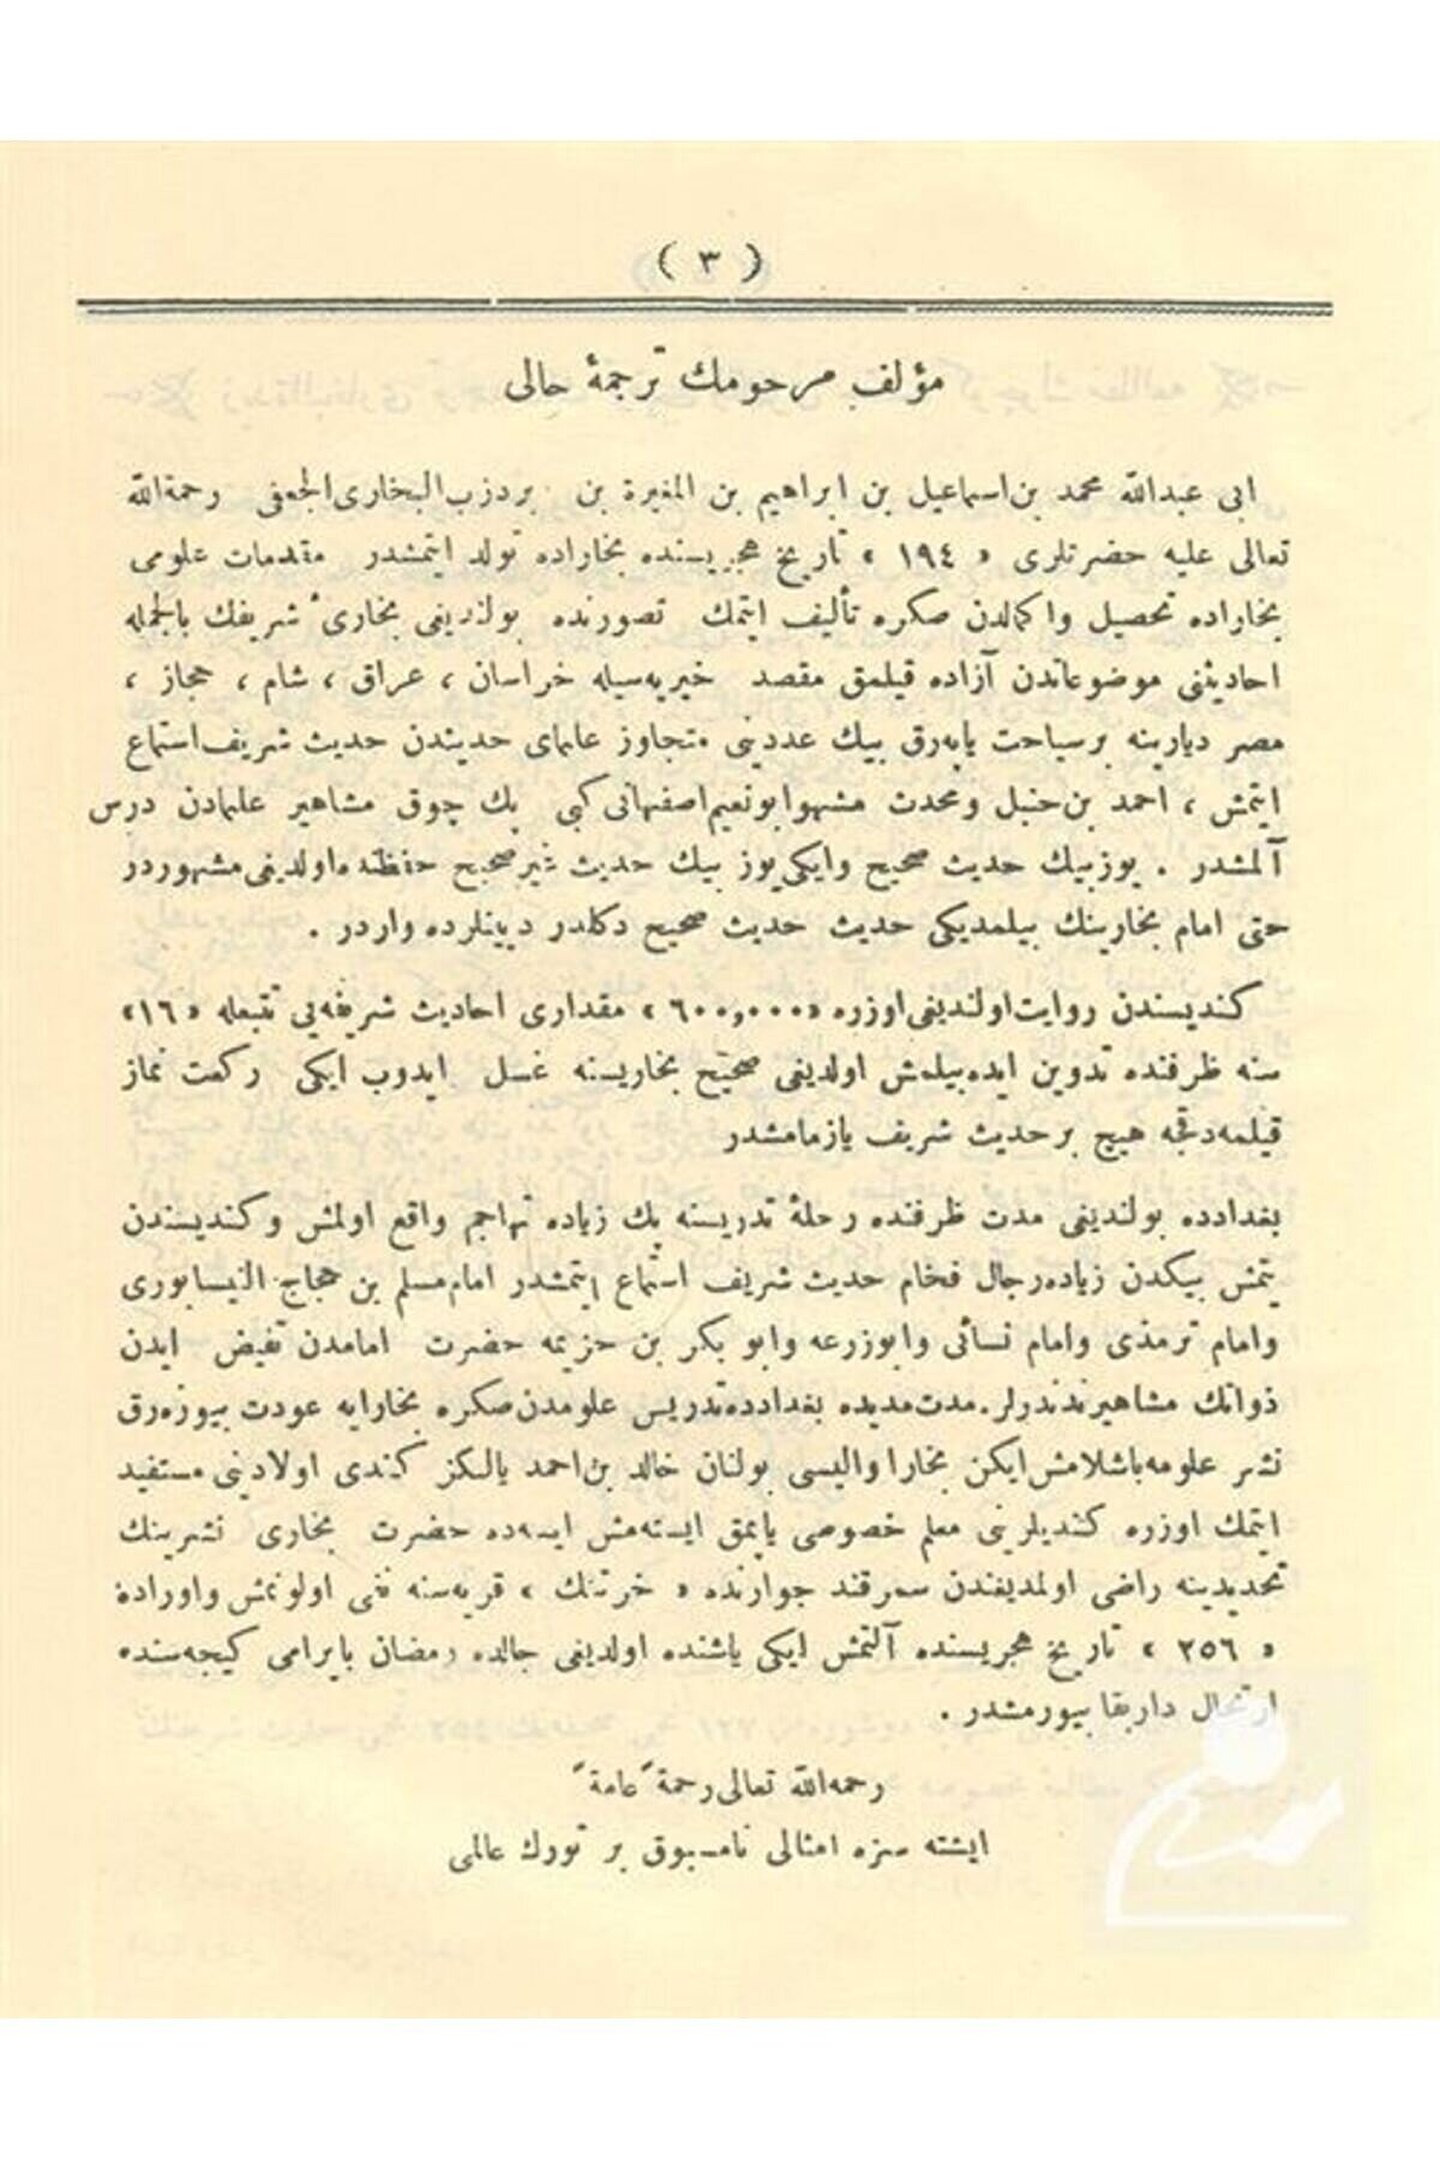 ( ٣ )
مؤلف مرحومك ترجمۀ حالی
ابی عبدالله محمد بن اسماعیل بن ابراهیم بن المغیرة بن بردزب البخاری الجعفی رحمة الله
تعالی علیه حضرتلری « ١٩٤ » تاریخ هجریسنده بخاراده تولد ایتمشدر مقدمات علومی
بخاراده تحصیل واكمالدن صكره تألیف ایتمك تصورنده بولندیغی بخاریٔ شریفك بالجمله
احادیثنی موضوعاتدن آزاده قیلمق مقصد خیریه‌سیله خراسان ، عراق ، شام ، حجاز ،
مصر دیارینه برسیاحت یاپه‌رق بیك عددینی متجاوز علمای حدیثدن حدیث شریف استماع
ایتمش ، احمد بن حنبل ومحدث مشهو ابونعیم اصفهانی كبی پك چوق مشاهیر علمادن درس
آلمشدر . یوزبیك حدیث صحیح وایكی یوز بیك حدیث غیرصحیح حفظنده اولدیغی مشهوردر
حتی امام بخارینك بیلمدیكی حدیث حدیث صحیح دكلدر دیینلرده واردر .
كندیسندن روایت اولندیغی اوزره «٦٠٠,٠٠٠» مقداری احادیث شریفه‌یی تتبعله «١٦»
سنه ظرفنده تدوین ایده‌بیلمش اولدیغی صحیح بخاریسنه غسل ایدوب ایكی ركعت نماز
قیلمه‌دقجه هیچ برحدیث شریف یازمامشدر
بغدادده بولندیغی مدت ظرفنده رحلۀ تدریسنه پك زیاده تهاجم واقع اولمش وكندیسندن
یتمش بیكدن زیاده رجال فخام حدیث شریف استماع ایتمشدر امام مسلم بن حجاج النیسابوری
وامام ترمذی وامام نسائی وابوزرعه وابو بكر بن حزیمه حضرت امامدن تفیض ایدن
ذواتك مشاهیرندندرلر . مدت مدیده بغدادده تدریس علومدن صكره بخارایه عودت بیوره‌رق
نشر علومه باشلامش ایكن بخارا والیسی بولنان خالد بن احمد یالكز كندی اولادینی مستفید
ایتمك اوزره كندیلرینی معلم خصوصی یاپمق ایسته‌مش ایسه‌ده حضرت بخاری نشرینك
تحدیدینه راضی اولمدیغندن سمرقند جوارنده « خرتنك » قریه‌سنه نفی اولونمش واوراده
« ٢٥٦ » تاریخ هجریسنده آلتمش ایكی یاشنده اولدیغی حالده رمضان بایرامی كیجه‌سنده
ارتحال داربقا بیورمشدر .
رحمه الله تعالی رحمةً عامةً
ایشته سزه امثالی نامسبوق بر تورك عالمی